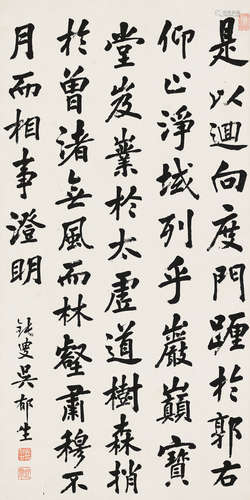 是以迴向度門踵於郭右
仰止淨域列乎巖巔寶
堂岌業於太虛道樹森梢
於曾渚無風而林壑肅穆不
月而相事澄明
鈍叟吳郁生